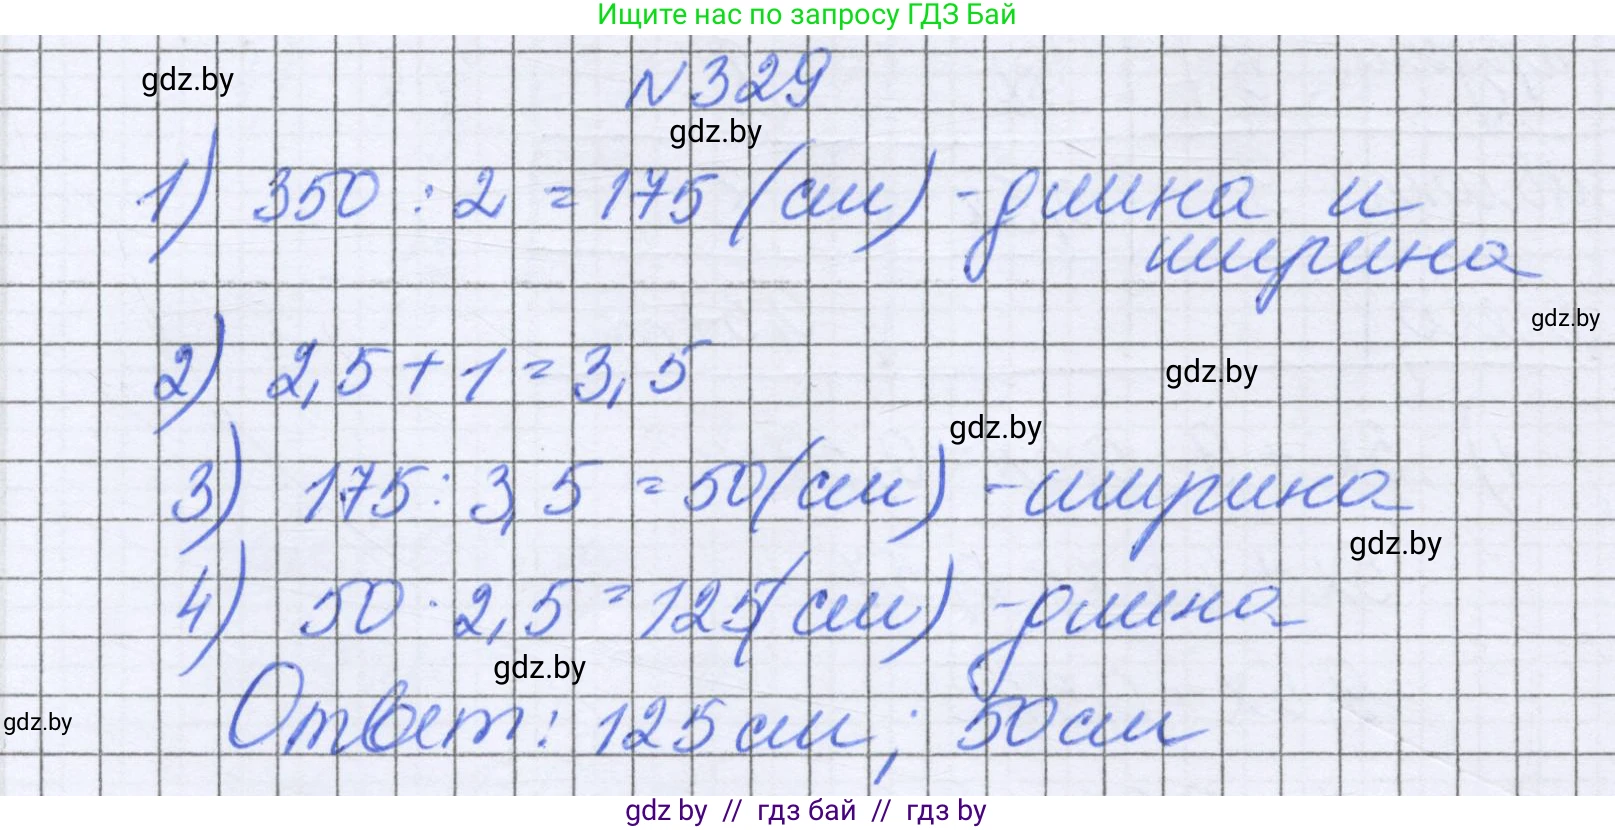 Ищите нас по запросу ГДЗ Бай
gdz.by
N 329
gdz.by
1) 350 : 2 = 175 (см) - длина и
ширина
gdz.by
2) 2,5 + 1 = 3,5
gdz.by
gdz.by
3) 175 : 3,5 = 50 (см) - ширина
gdz.by
4) 50 · 2,5 = 125 (см) - длина
gdz.by
Ответ: 125 см ; 50 см
gdz.by
gdz by // гдз бай // гдз by